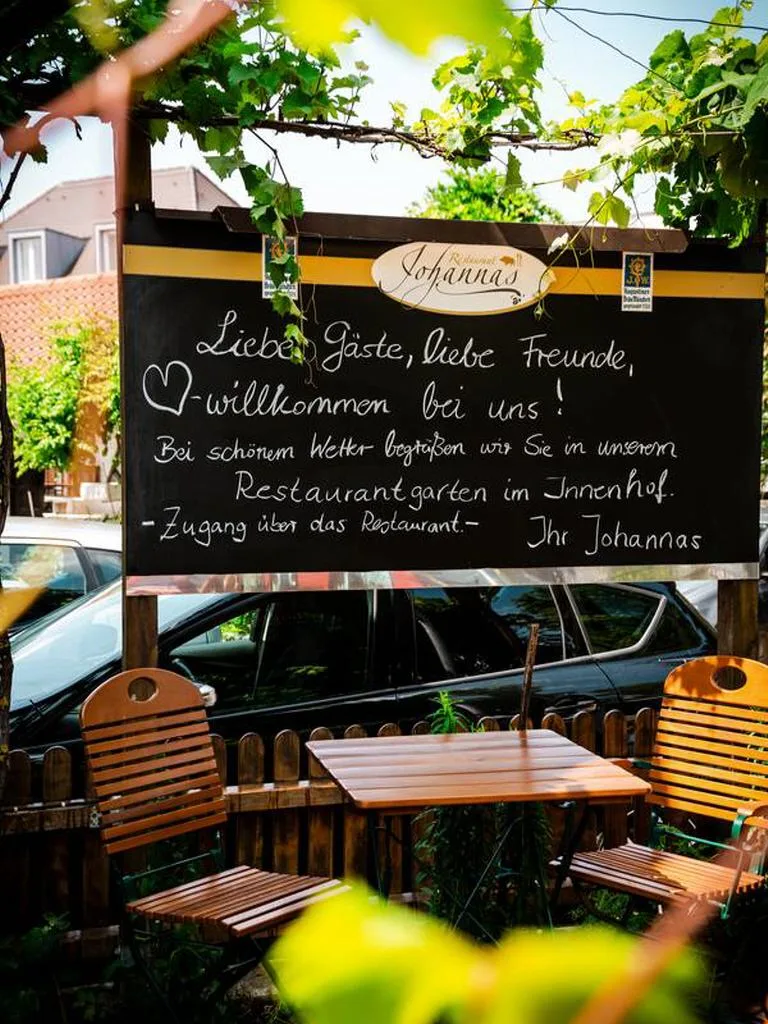 Restaurant
Johannas
Liebe Gäste, liebe Freunde,
♡-willkommen bei uns!
Bei schönem Wetter begrüßen wir Sie in unserem
Restaurantgarten im Innenhof.
-Zugang über das Restaurant.-
Ihr Johannas